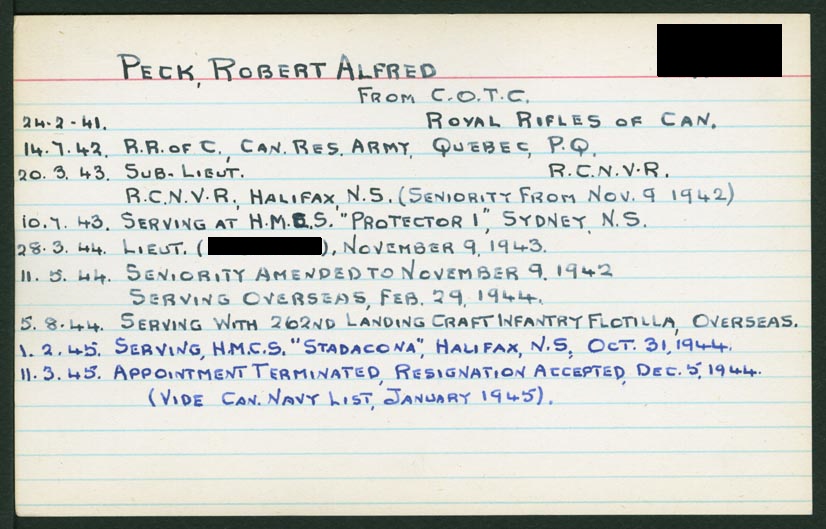 PECK, ROBERT ALFRED
FROM C.O.T.C.
24-2-41. ROYAL RIFLES OF CAN.
14.7.42. R.R. OF C., CAN. RES. ARMY, QUEBEC, P.Q.
20.3.43. SUB-LIEUT. R.C.N.V.R.
R.C.N.V.R., HALIFAX, N.S. (SENIORITY FROM NOV. 9 1942)
10.7.43. SERVING AT H.M.C.S. "PROTECTOR I", SYDNEY, N.S.
28.3.44. LIEUT. ( ), NOVEMBER 9, 1943.
11.5.44. SENIORITY AMENDED TO NOVEMBER 9, 1942
SERVING OVERSEAS, FEB. 29, 1944.
5.8.44. SERVING WITH 262ND LANDING CRAFT INFANTRY FLOTILLA, OVERSEAS.
1.2.45. SERVING, H.M.C.S. "STADACONA", HALIFAX, N.S., OCT. 31, 1944.
11.3.45. APPOINTMENT TERMINATED, RESIGNATION ACCEPTED, DEC. 5, 1944.
(VIDE CAN. NAVY LIST, JANUARY 1945).